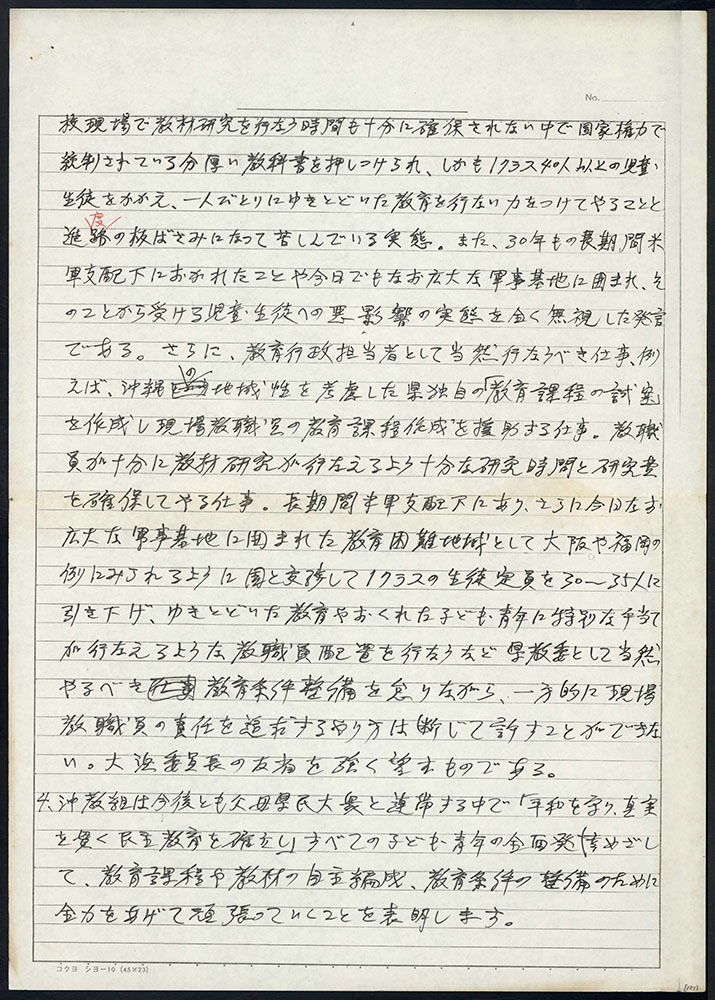 No.
校現場で教材研究を行なう時間も十分に確保されない中で国家権力で
統制されている分厚い教科書を押しつけられ、しかも1クラス40人以上の児童・
生徒をかかえ、一人びとりにゆきとどいた教育を行ない力をつけてやることと
度
進路の板ばさみになって苦しんでいる実態。また、30年もの長期間米
軍支配下におかれたことや今日でもなお広大な軍事基地に囲まれ、そ
のことから受ける児童・生徒への悪影響の実態を全く無視した発言
である。さらに、教育行政担当者として当然行なうべき仕事、例
えば、沖縄の地域性を考慮した県独自の「教育課程の試案」
を作成し現場教職員の教育課程作成を援助する仕事。教職
員が十分に教材研究が行なえるよう十分な研究時間と研究費
を確保してやる仕事。長期間米軍支配下にあり、さらに今日なお
広大な軍事基地に囲まれた教育困難地域として大阪や福岡の
例にみられるように国と交渉して1クラスの生徒定員を30〜35人に
引き下げ、ゆきとどいた教育やおくれた子ども・青年に特別な手当て
が行なえるような教職員配置を行なうなど県教委として当然
やるべき教育条件整備を怠りながら、一方的に現場
教職員の責任を追求するやり方は断じて許すことができな
い。大浜委員長の反省を強く望むものである。
4、沖教組は今後とも父母県民大衆と連帯する中で「平和を守り、真実
を貫く民主教育を確立し」すべての子ども・青年の全面発達をめざし
て、教育課程や教材の自主編成、教育条件の整備のために
全力をあげて頑張っていくことを表明します。
コクヨ シヨー10 (45×23)